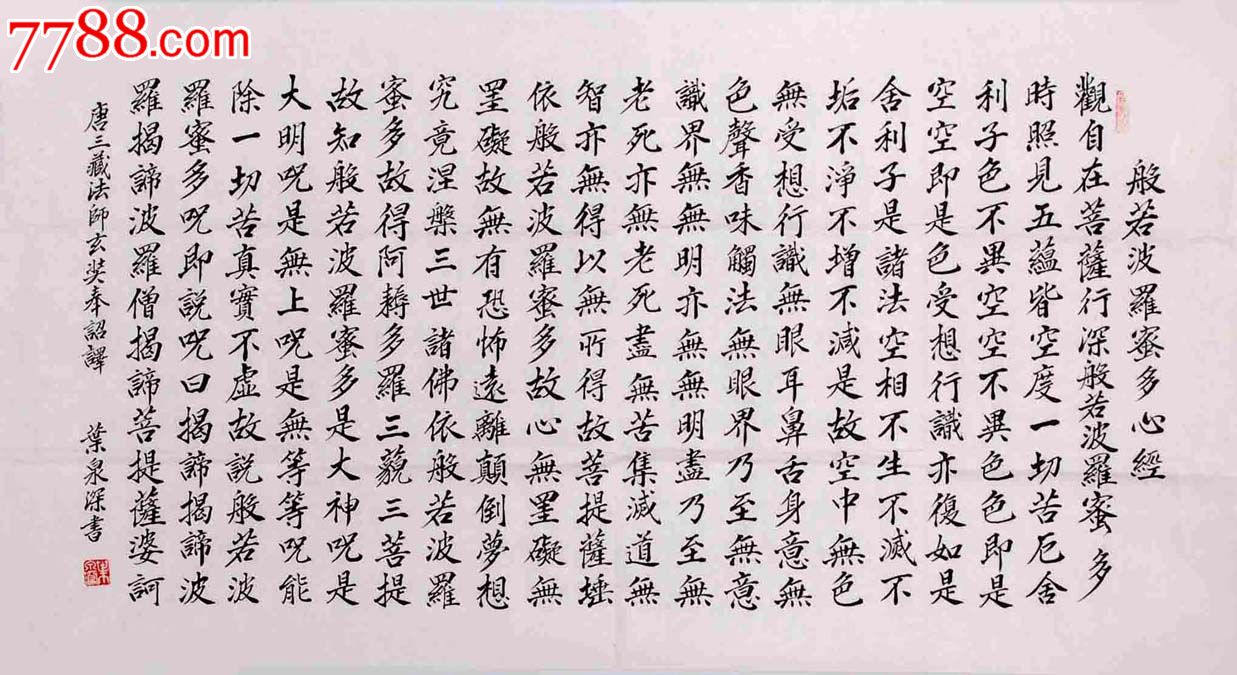 7788.com
般若波羅蜜多心經
觀自在菩薩行深般若波羅蜜多
時照見五蘊皆空度一切苦厄舍
利子色不異空空不異色色即是
空空即是色受想行識亦復如是
舍利子是諸法空相不生不滅不
垢不淨不增不減是故空中無色
無受想行識無眼耳鼻舌身意無
色聲香味觸法無眼界乃至無意
識界無無明亦無無明盡乃至無
老死亦無老死盡無苦集滅道無
智亦無得以無所得故菩提薩埵
依般若波羅蜜多故心無罣礙無
罣礙故無有恐怖遠離顛倒夢想
究竟涅槃三世諸佛依般若波羅
蜜多故得阿耨多羅三藐三菩提
故知般若波羅蜜多是大神呪是
大明呪是無上呪是無等等呪能
除一切苦真實不虛故說般若波
羅蜜多呪即說呪曰揭諦揭諦波
羅揭諦波羅僧揭諦菩提薩婆訶
唐三藏法師玄奘奉詔譯 葉泉深書